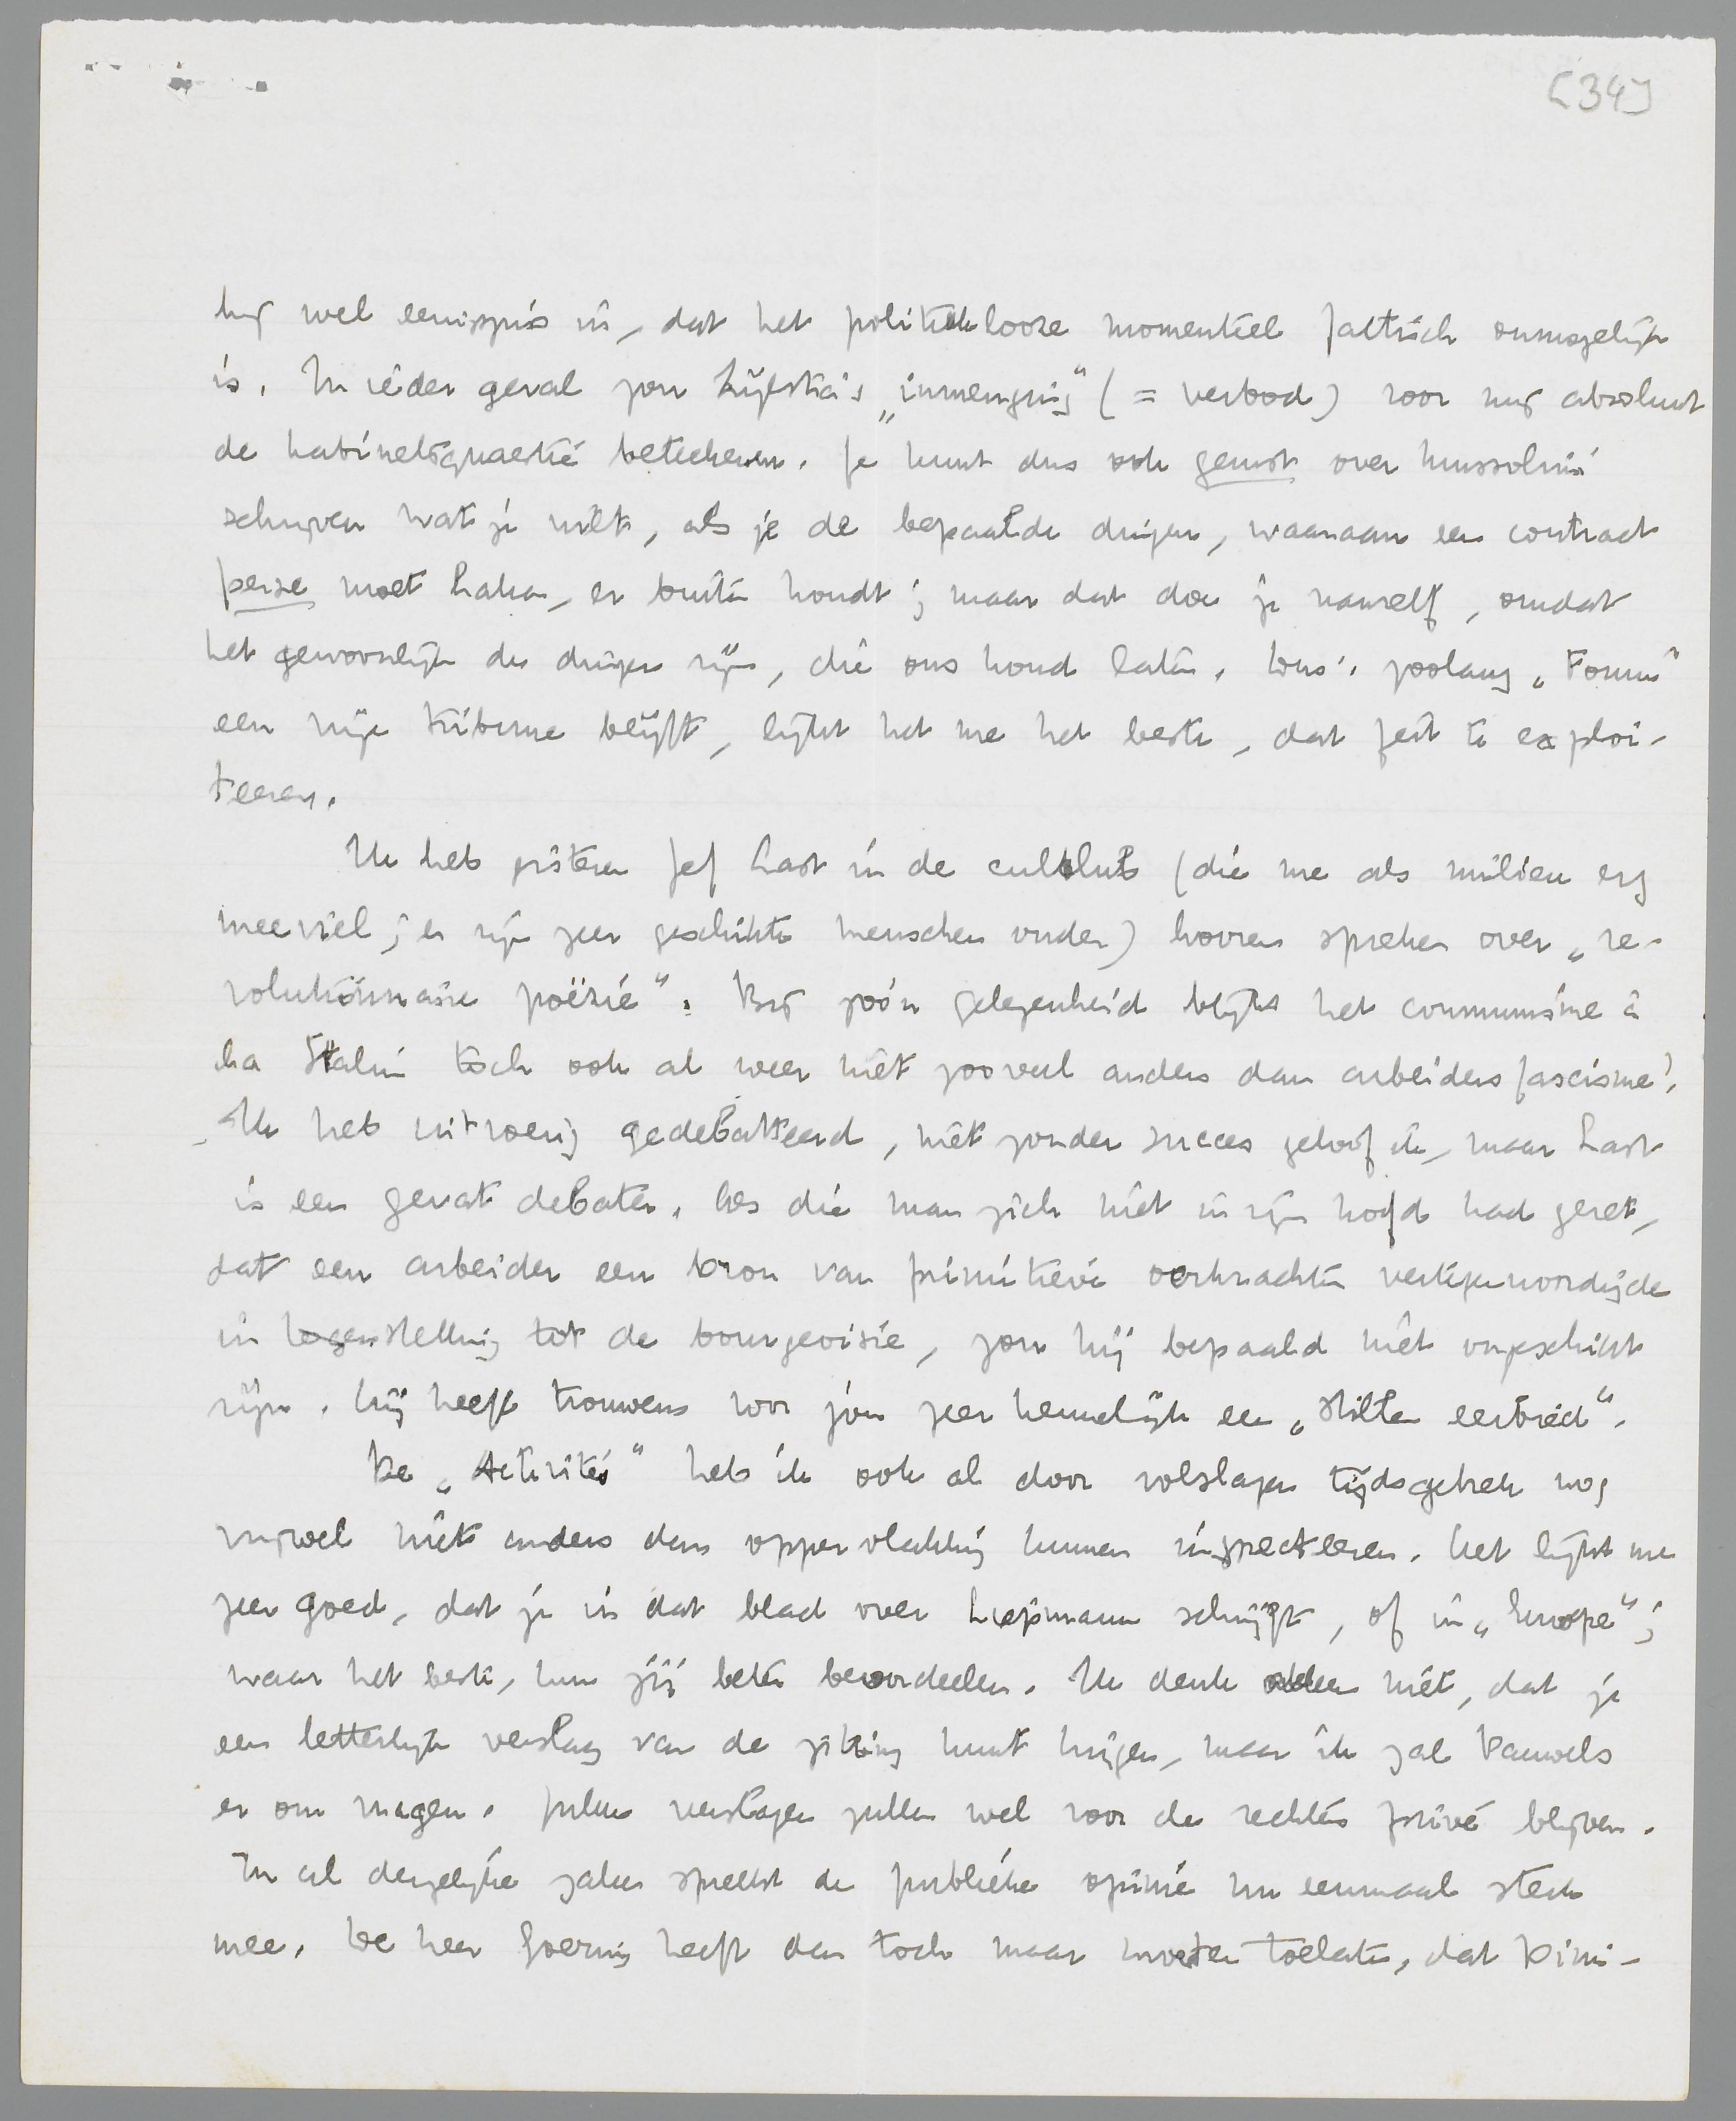 [34]
hij wel eenigszins in, dat het politiek looze momenteel faktisch onmogelijk
is. In ieder geval zou Zijlstra's „inmenging" (= verbod) voor mij absoluut
de kabinetsquaestie beteekenen. Je kunt dus ook gerust over Mussolini
schrijven wat je wilt, als je de bepaalde dingen, waaraan een contract
perse moet haken, er buiten houdt; maar dat doe je vanzelf, omdat
het gewoonlijk de dingen zijn, die ons koud laten. Dus: zoolang „Forum"
een vrije tribune blijft, lijkt het me het beste, dat feit te exploi-
teeren.
Ik heb gisteren Jef Last in de cultclub (die me als milieu erg
meeviel; er zijn zeer geschikte menschen onder) hooren spreken over „re-
volutionnaire poëzie". Bij zoo'n gelegenheid blijkt het communisme à
la Stalin toch ook al weer niet zooveel anders dan arbeidersfascisme!
Ik heb uitvoerig gedebatteerd, niet zonder succes geloof ik, maar Last
is een gevat debater. Als die man zich niet in zijn hoofd had gezet,
dat een arbeider een bron van primitieve oerkrachten vertegenwoordigde
in tegenstelling tot de bourgeoisie, zou hij bepaald niet ongeschikt
zijn. Hij heeft trouwens voor jou zeer kennelijk een „stillen eerbied".
De „Activités" heb ik ook al door volslagen tijdsgebrek nog
vrijwel niet anders dan oppervlakkig kunnen inspecteeren. Het lijkt me
zeer goed, dat je in dat blad over Liepmann schrijft, of in „Europe";
waar het beste, kun jij beter beoordeelen. Ik denk niet, dat je
een letterlijk verslag van de zitting kunt krijgen, maar ik zal Pauwels
er om vragen. Zulke verslagen zullen wel voor de rechters privé blijven.
In al dergelijke zaken spreekt de publieke opinie nu eenmaal sterk
mee. De heer Goering heeft dan toch maar moeten toelaten, dat Dimi-